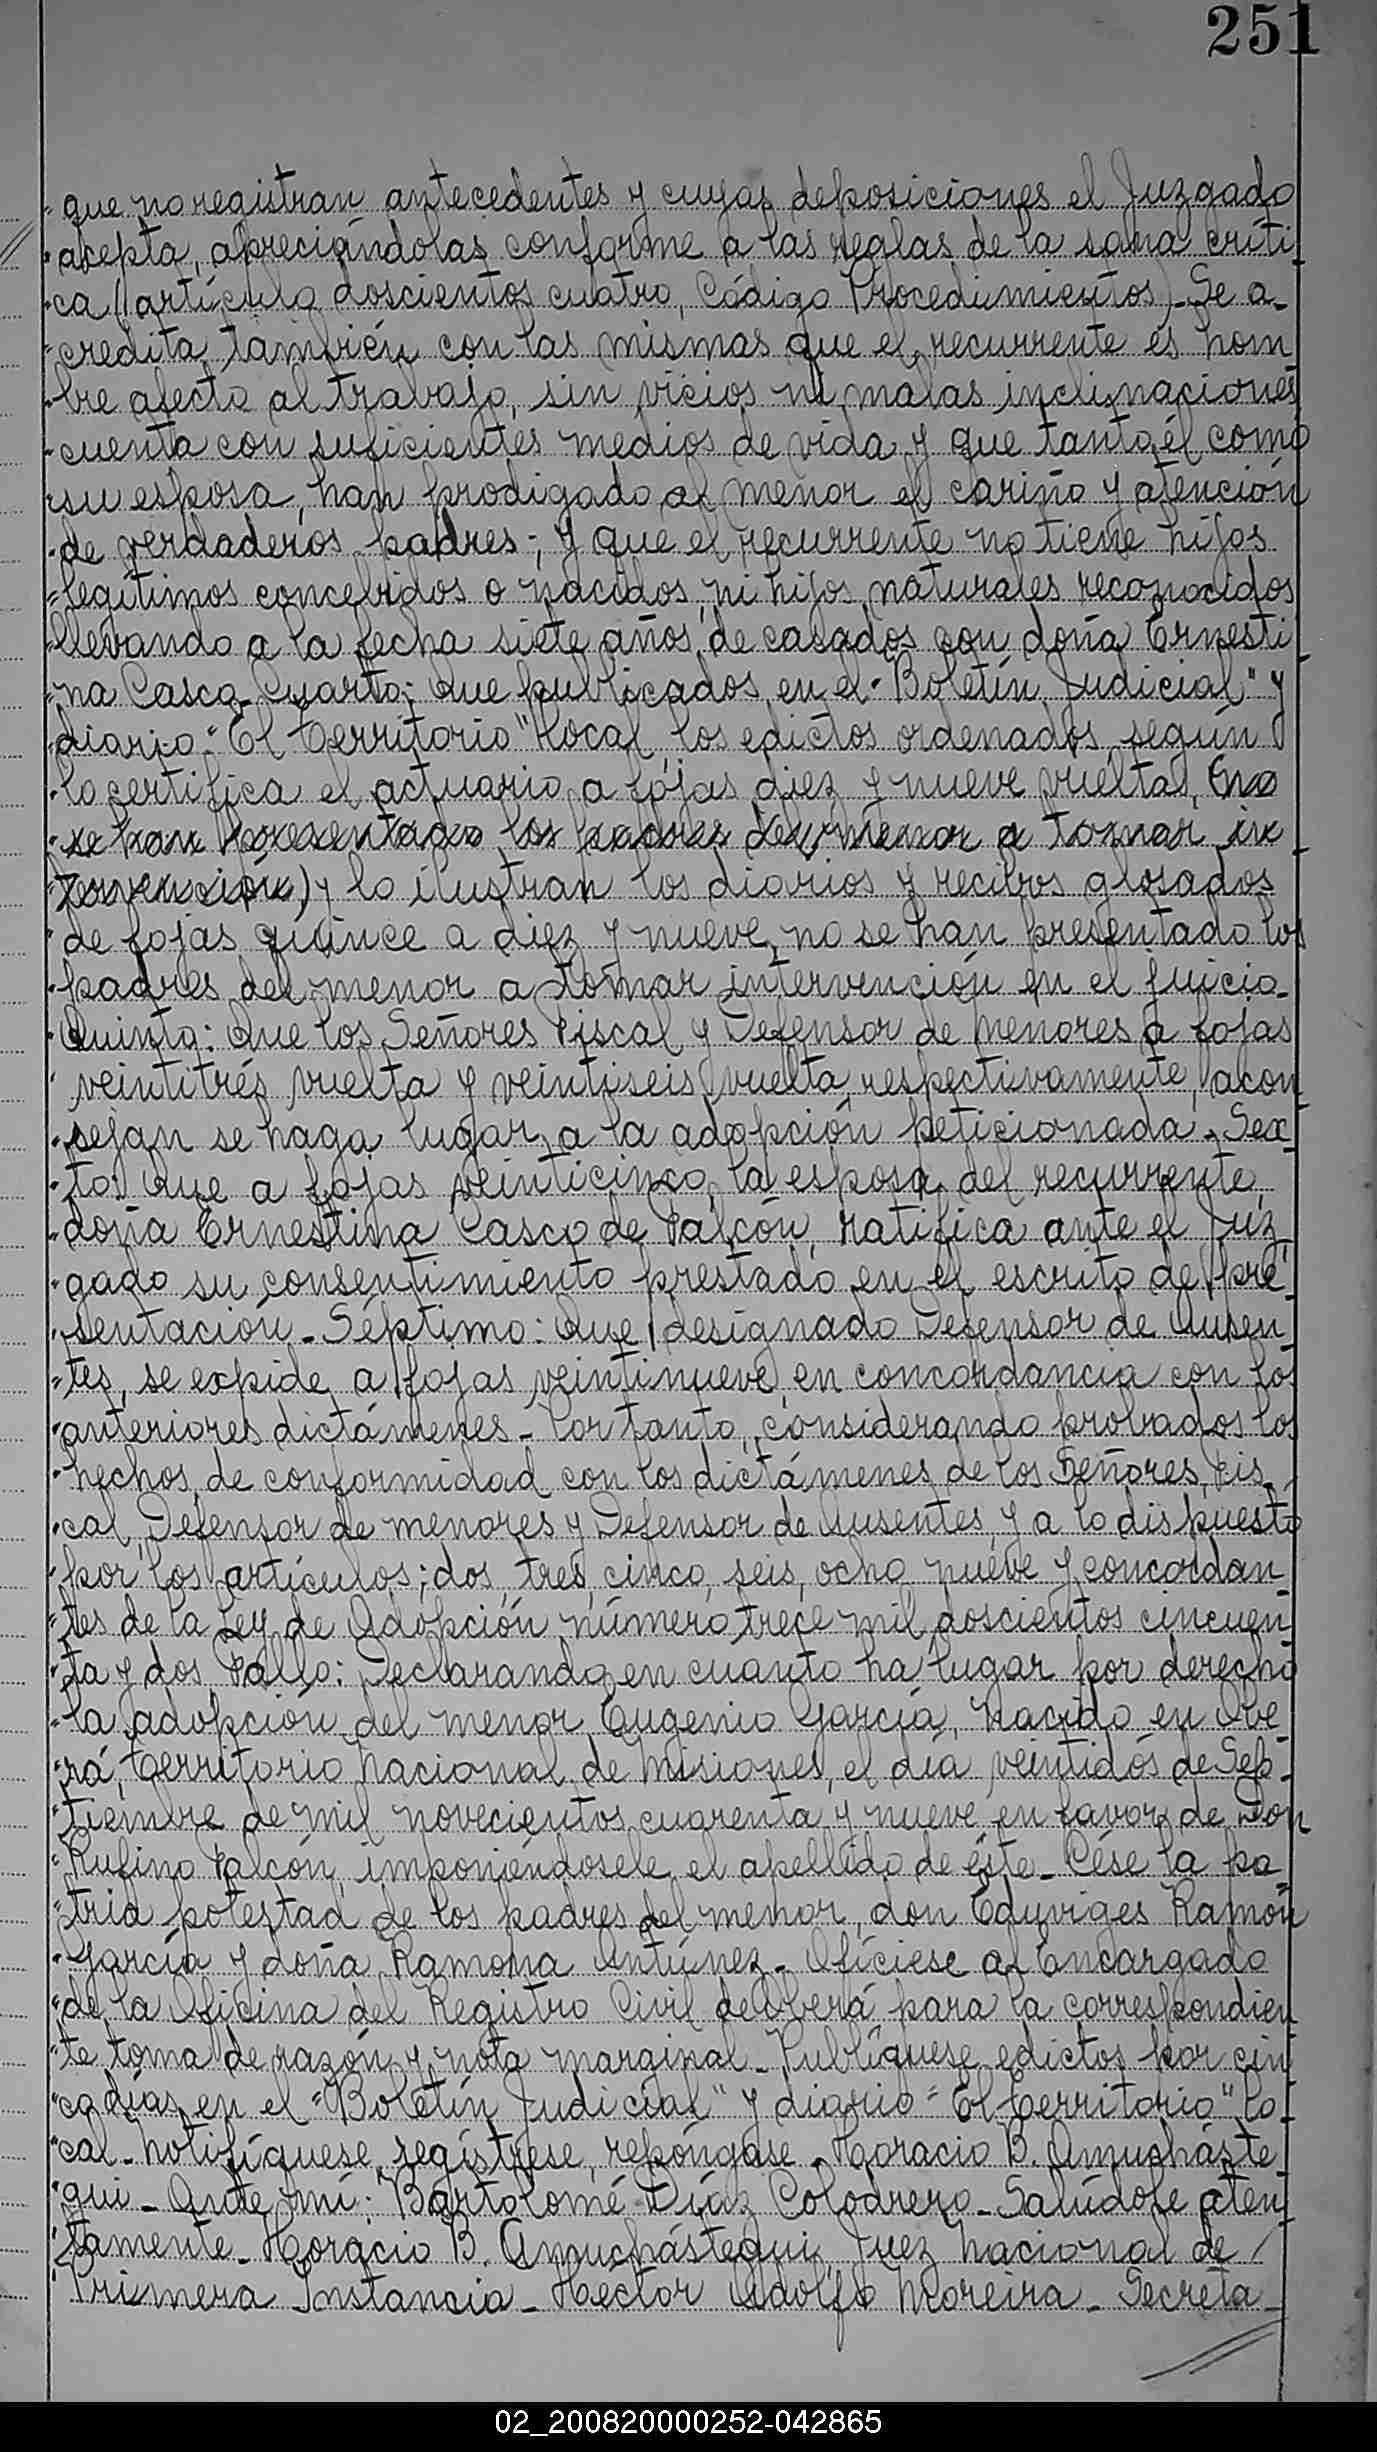 251
que no registran antecedentes y cuyas deposiciones el Juzgado
acepta, apreciándolas conforme a las reglas de la sana críti
ca (artículo doscientos cuatro, Código Procedimientos)_Se a_
credita también con las mismas que el recurrente es hom
bre afecto al trabajo, sin vicios ni malas inclinaciones
cuenta con suficientes medios de vida y que tanto él como
su esposa, han prodigado al menor el cariño y atención
de verdaderos padres; y que el recurrente no tiene hijos
legítimos concebidos o nacidos, ni hijos naturales reconocidos
llevando a la fecha siete años de casados con doña Ernesti
na Casco_Cuarto: Que publicados en el "Boletín Judicial" y
diario "El Territorio" local, los edictos ordenados, según
lo certifica el actuario a fojas diez y nueve vuelta, (no
se han presentado los padres del menor a tomar in
tervención) y lo ilustran los diarios y recibos glosados
de fojas quince a diez y nueve, no se han presentado los
padres del menor a tomar intervención en el juicio_
Quinto: Que los Señores Fiscal y Defensor de Menores a fojas
veintitrés vuelta y veintiseis vuelta, respectivamente, acon
sejan se haga lugar a la adopción peticionada_Sex
to: Que a fojas veinticinco, la esposa del recurrente,
doña Ernestina Casco de Falcón, ratifica ante el Juz
gado su consentimiento prestado en el escrito de pre
sentación_Séptimo: Que designado Defensor de Ausen
tes, se expide a fojas veintinueve en concordancia con los
anteriores dictámenes_Por tanto, considerando probados los
hechos, de conformidad con los dictámenes de los Señores, Fis
cal, Defensor de menores y Defensor de Ausentes y a lo dispuesto
por los artículos; dos, tres, cinco, seis, ocho, nueve y concordan
tes de la Ley de Adopción número trece mil doscientos cincuen
ta y dos, Fallo: Declarando en cuanto ha lugar por derecho
la adopción del menor Eugenio García, nacido en Obe
rá, Territorio Nacional de Misiones, el día veintidós de Sep_
tiembre de mil novecientos cuarenta y nueve en favor de Don
Rufino Falcón, imponiéndosele el apellido de éste_Cése la pa
tria potestad de los padres del menor, don Eduviges Ramón
García y doña Ramona Antúnez_Ofíciese al Encargado
de la Oficina del Registro Civil de Oberá para la correspondien
te toma de razón y nota marginal_Publíquese edictos por cin
co días en el "Boletín Judicial" y diario "El Territorio" lo_
cal_Notifíquese, regístrese, repóngase_Horacio B. Amucháste
gui_Ante mí: Bartolomé Díaz Colodrero_Salúdole aten
tamente_Horacio B. Amuchástegui Juez Nacional de
Primera Instancia_Hector Adolfo Moreira_Secreta_
02_200820000252-042865